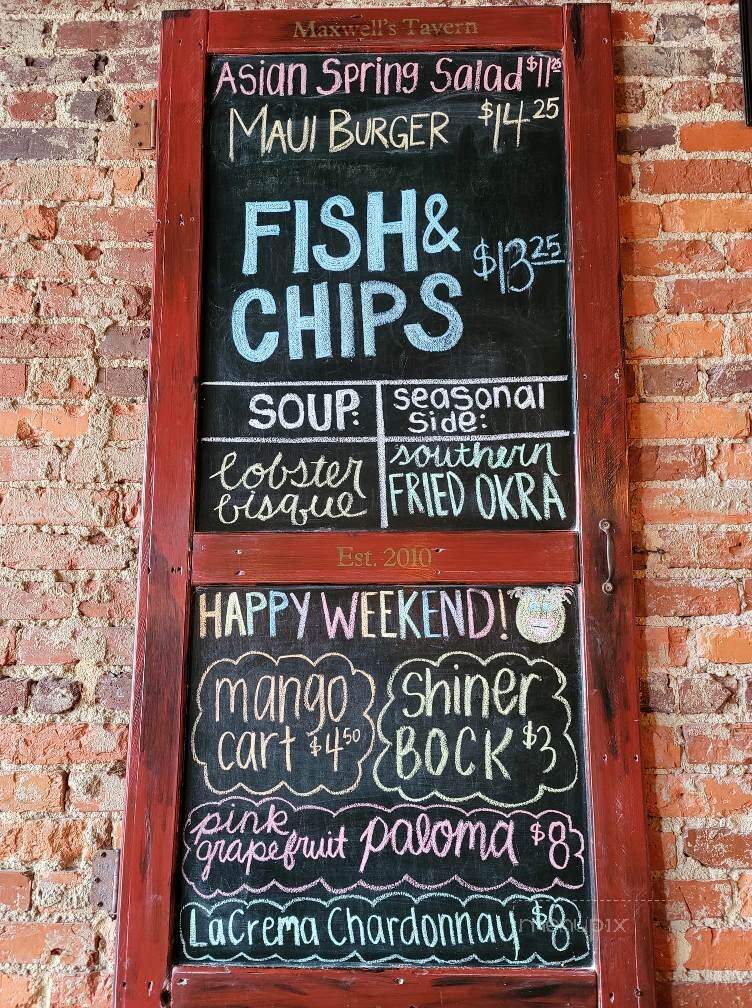 Maxwell's Tavern
Asian Spring Salad $11.25
MAUI BURGER $14.25
FISH &
CHIPS $13.25
SOUP: seasonal
side:
lobster
bisque
southern
FRIED OKRA
Est. 2010
HAPPY WEEKEND!
mango
cart $4.50
Shiner
BOCK $3
pink
grapefruit paloma $8
LaCrema Chardonnay $8
menupix